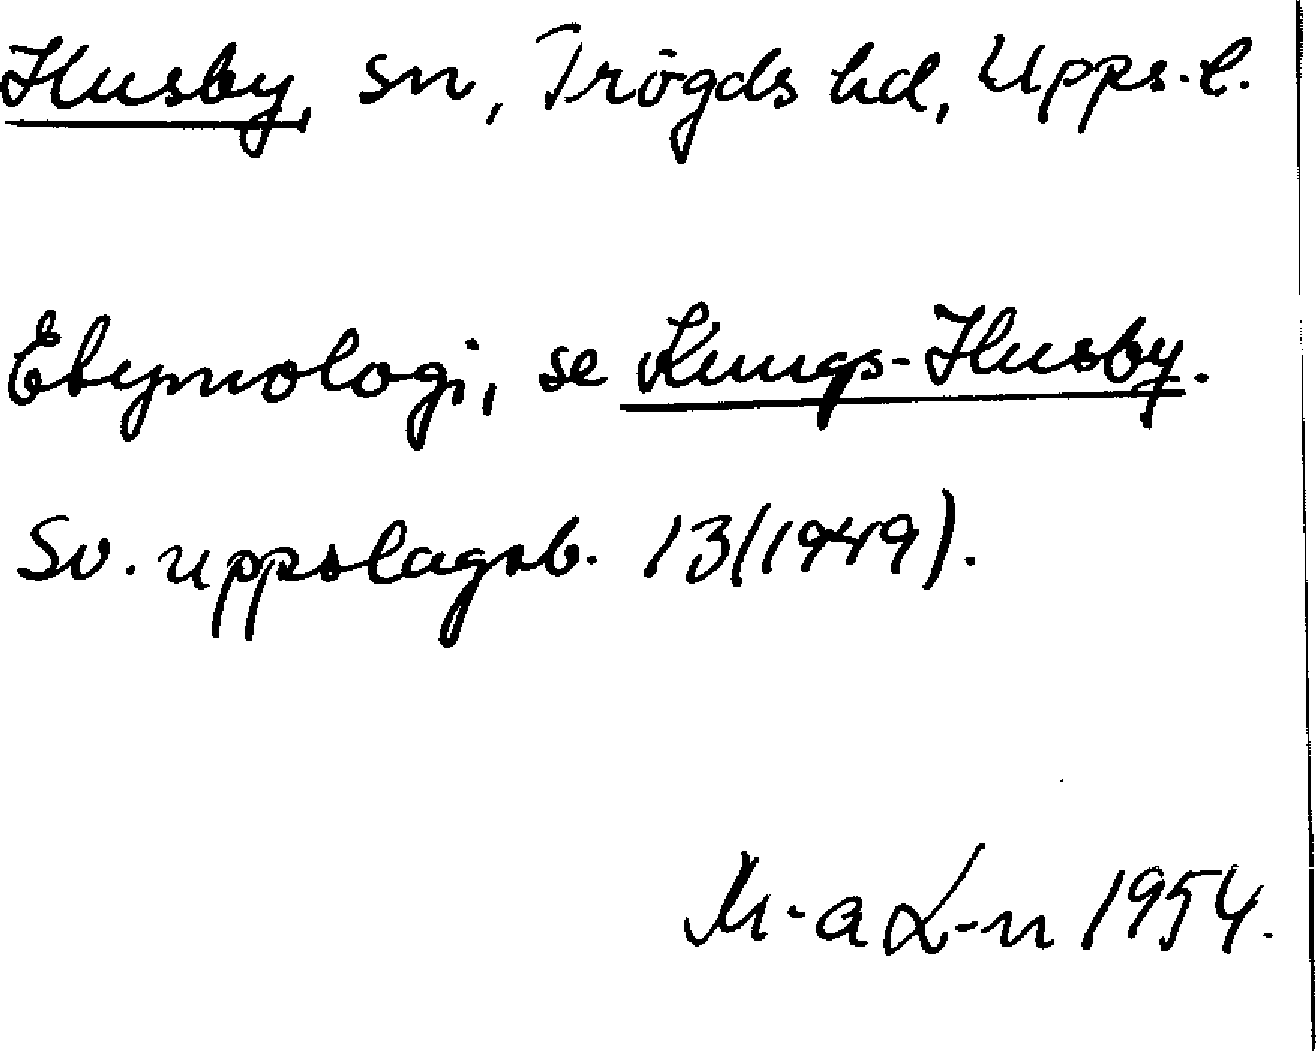 Husby, sn, Trögds hd, Upps. l.
Etymologi, se Kungs-Husby.
Sv. uppslagsb. 13 (1949).
M-a L-n 1954.